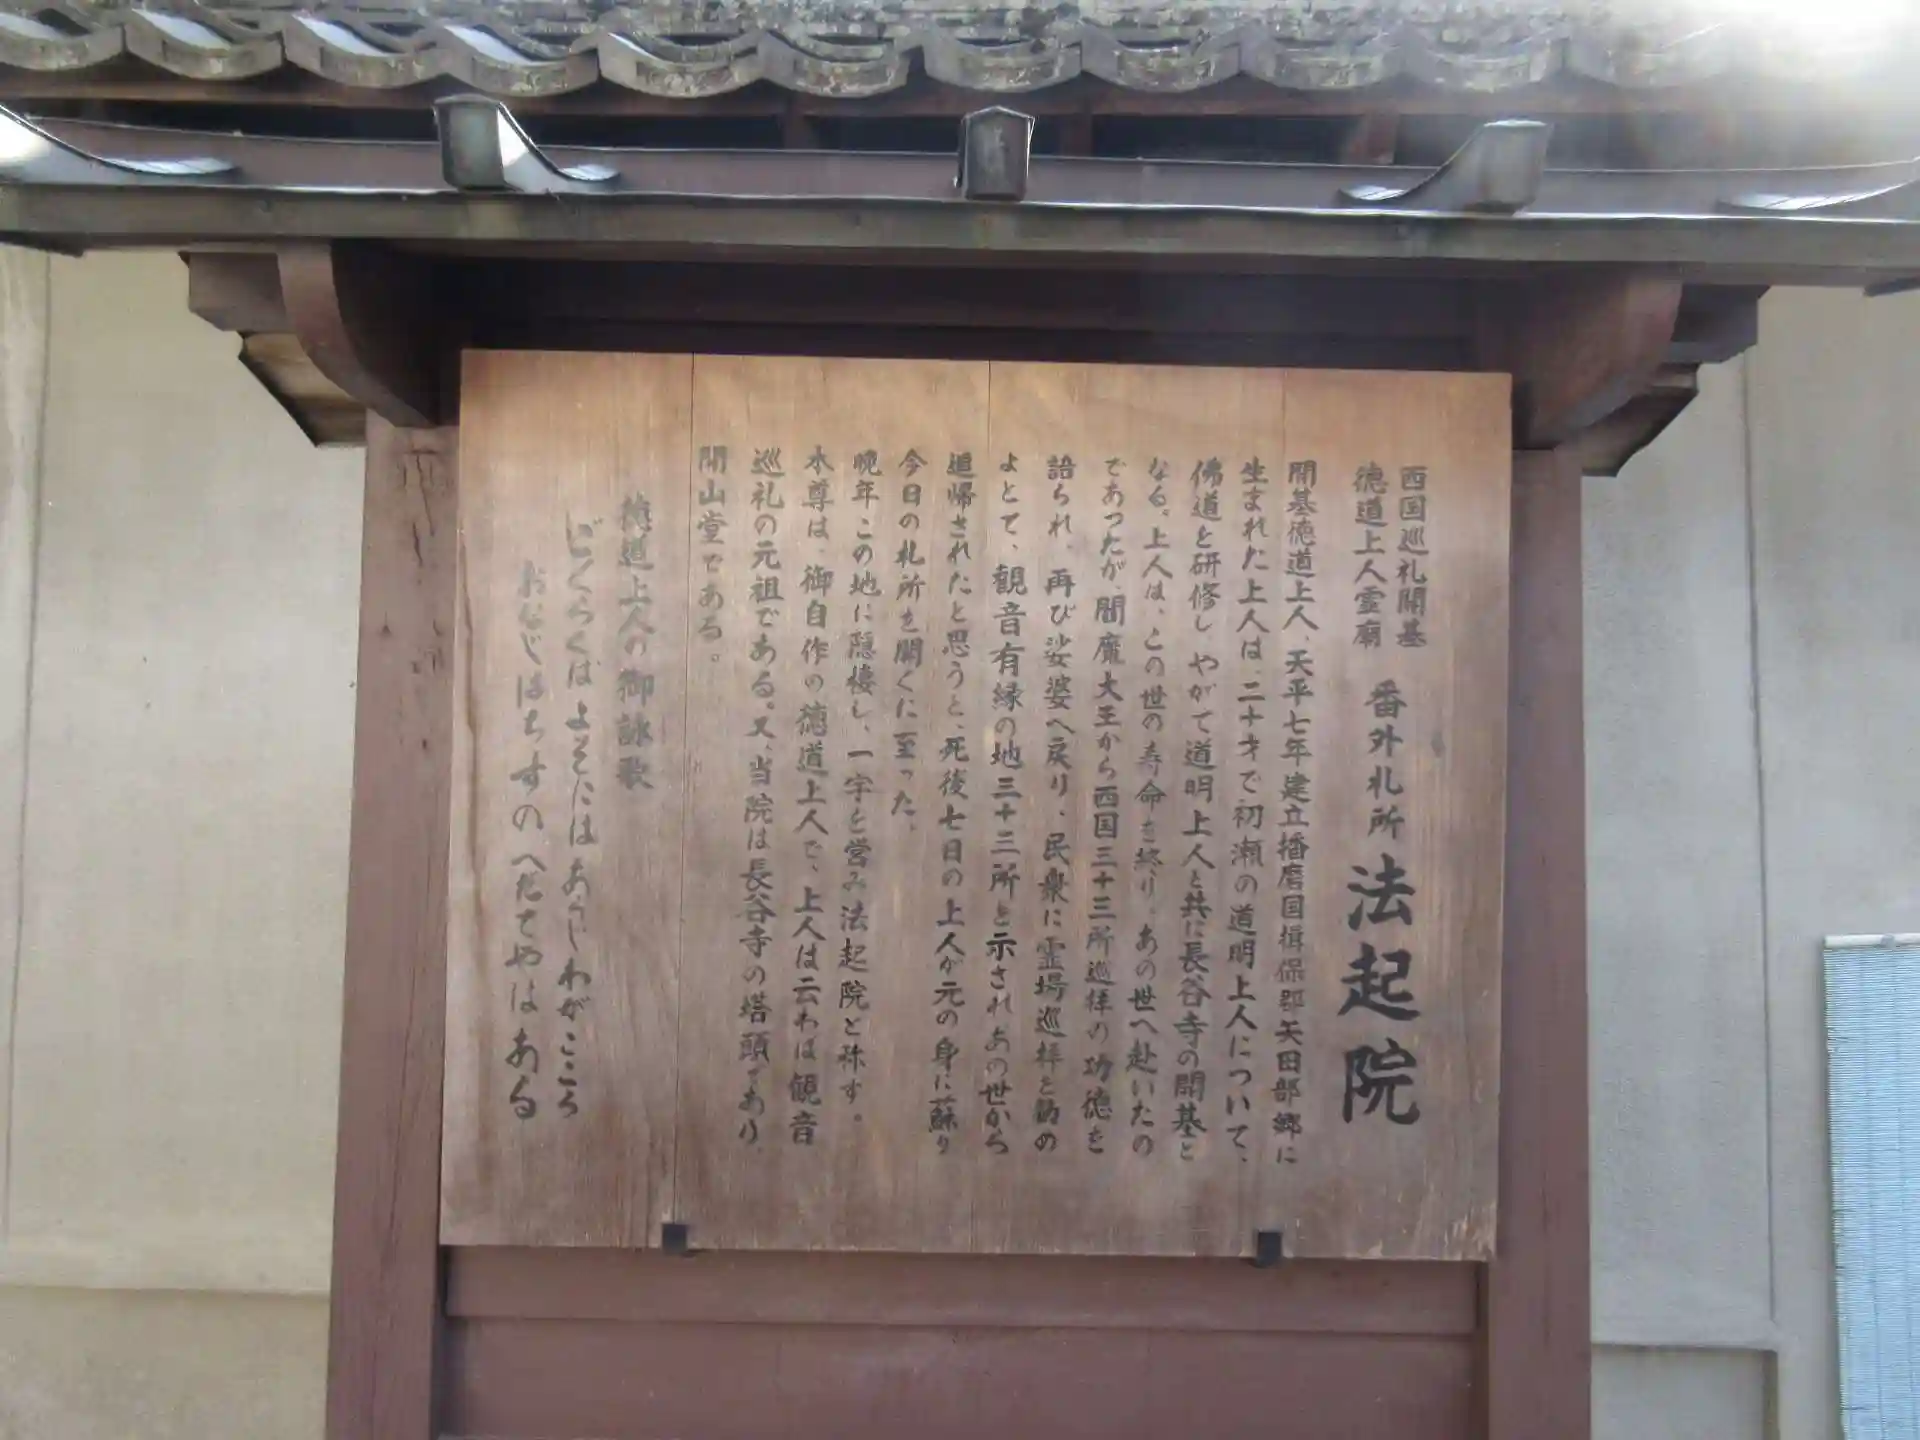 西国巡礼開基
徳道上人霊廟
番外札所 法起院
開基徳道上人、天平七年建立播磨国揖保郡矢田部郷に
生まれた上人は、二十才で初瀬の道明上人について、
佛道を研修し、やがて道明上人と共に長谷寺の開基と
なる。上人は、この世の寿命を終り、あの世へ赴いたの
であったが、閻魔大王から西国三十三所巡拝の功徳を
語られ、再び娑婆へ戻り、民衆に霊場巡拝を勧め
よとて、観音有縁の地三十三所を示されあの世から
追帰されたと思うと、死後七日の上人が元の身に蘇り
今日の札所を開くに至った。
晩年この地に隠棲し、一宇を営み法起院と称す。
本尊は、御自作の徳道上人で、上人は云わば観音
巡礼の元祖である。又、当院は長谷寺の塔頭であり、
開山堂である。
徳道上人の御詠歌
ごくらくは よそにはあらじわがこころ
おなじはちすのへだてやはある